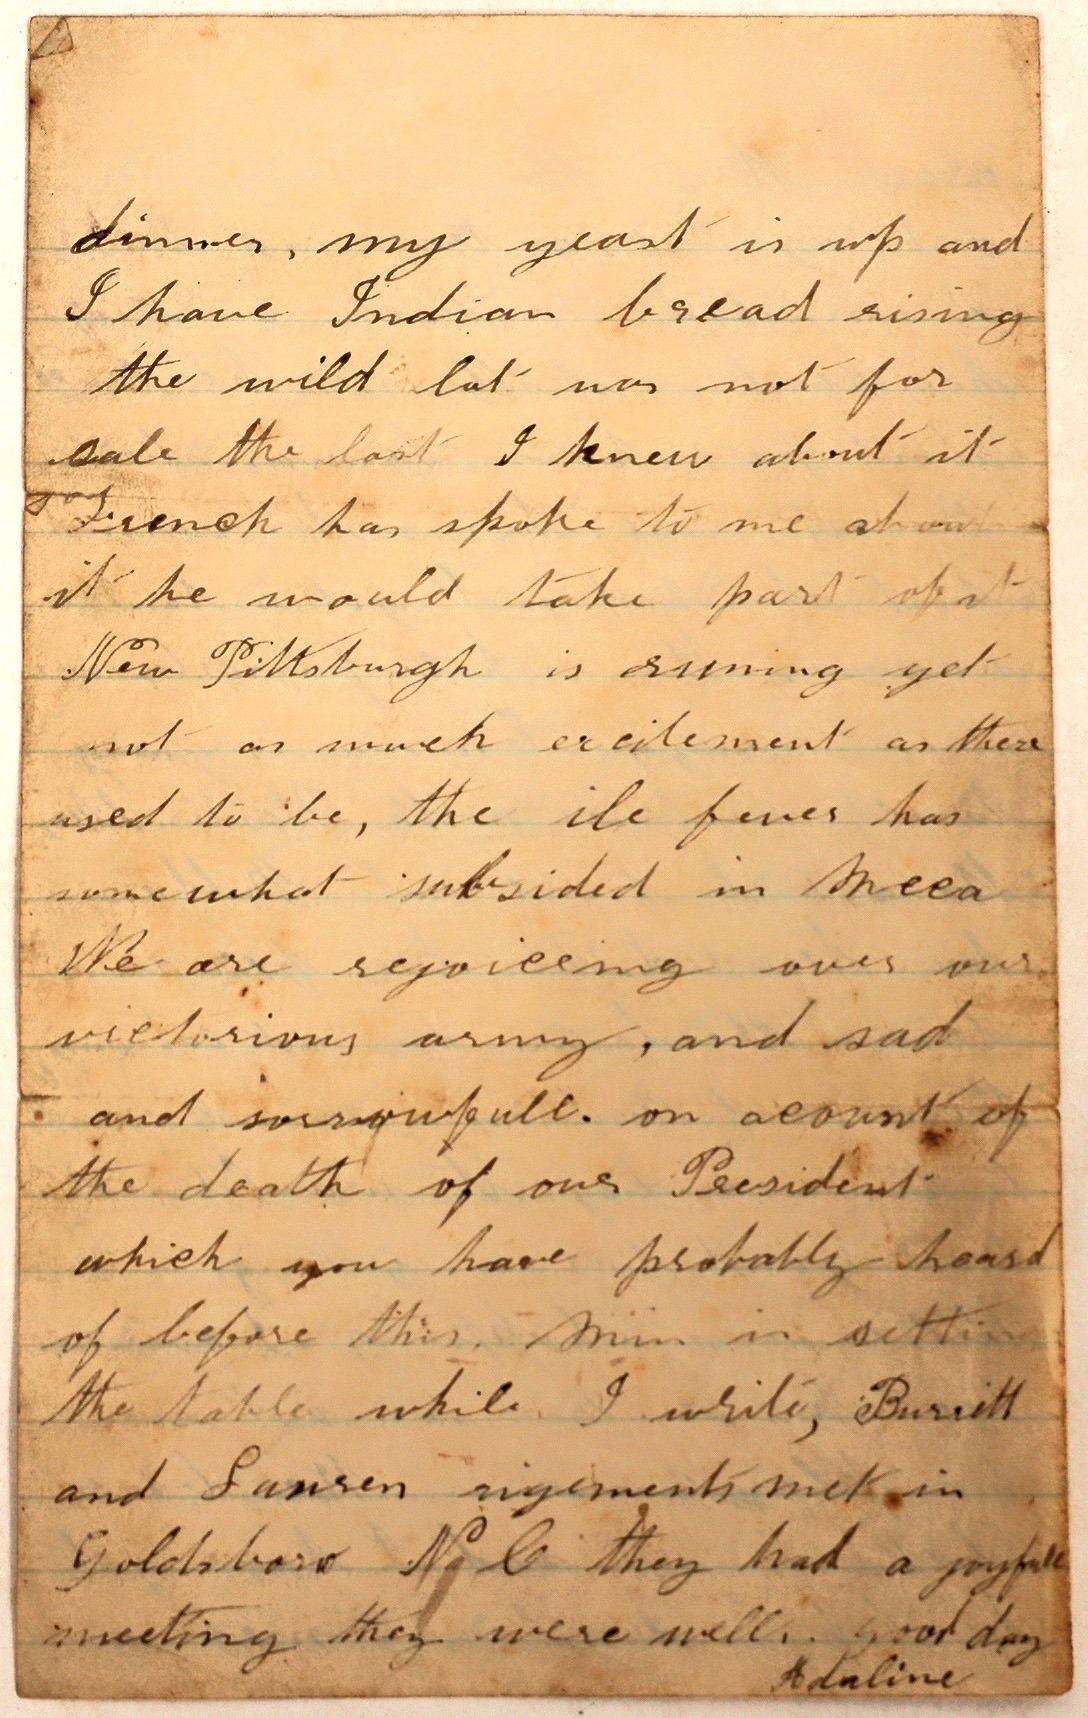 dinner, my yeast is up and
I have Indian bread rising
the wild lot was not for
sale the last I knew about it
French has spoke to me about
it he would take part of it
New Pittsburgh is runing yet
not as much excitement as there
used to be, the ile fever has
somewhat subsided in Mecca
We are rejoiceing over our
victorious army, and sad
and sorrowfull. on acount of
the death of our President
which you have probably heard
of before this. Mim is settin
the table while I write, Burritt
and Lauren rigements met in
Goldsboro No C they had a joyfull
meeting they were well.. good day
Adaline